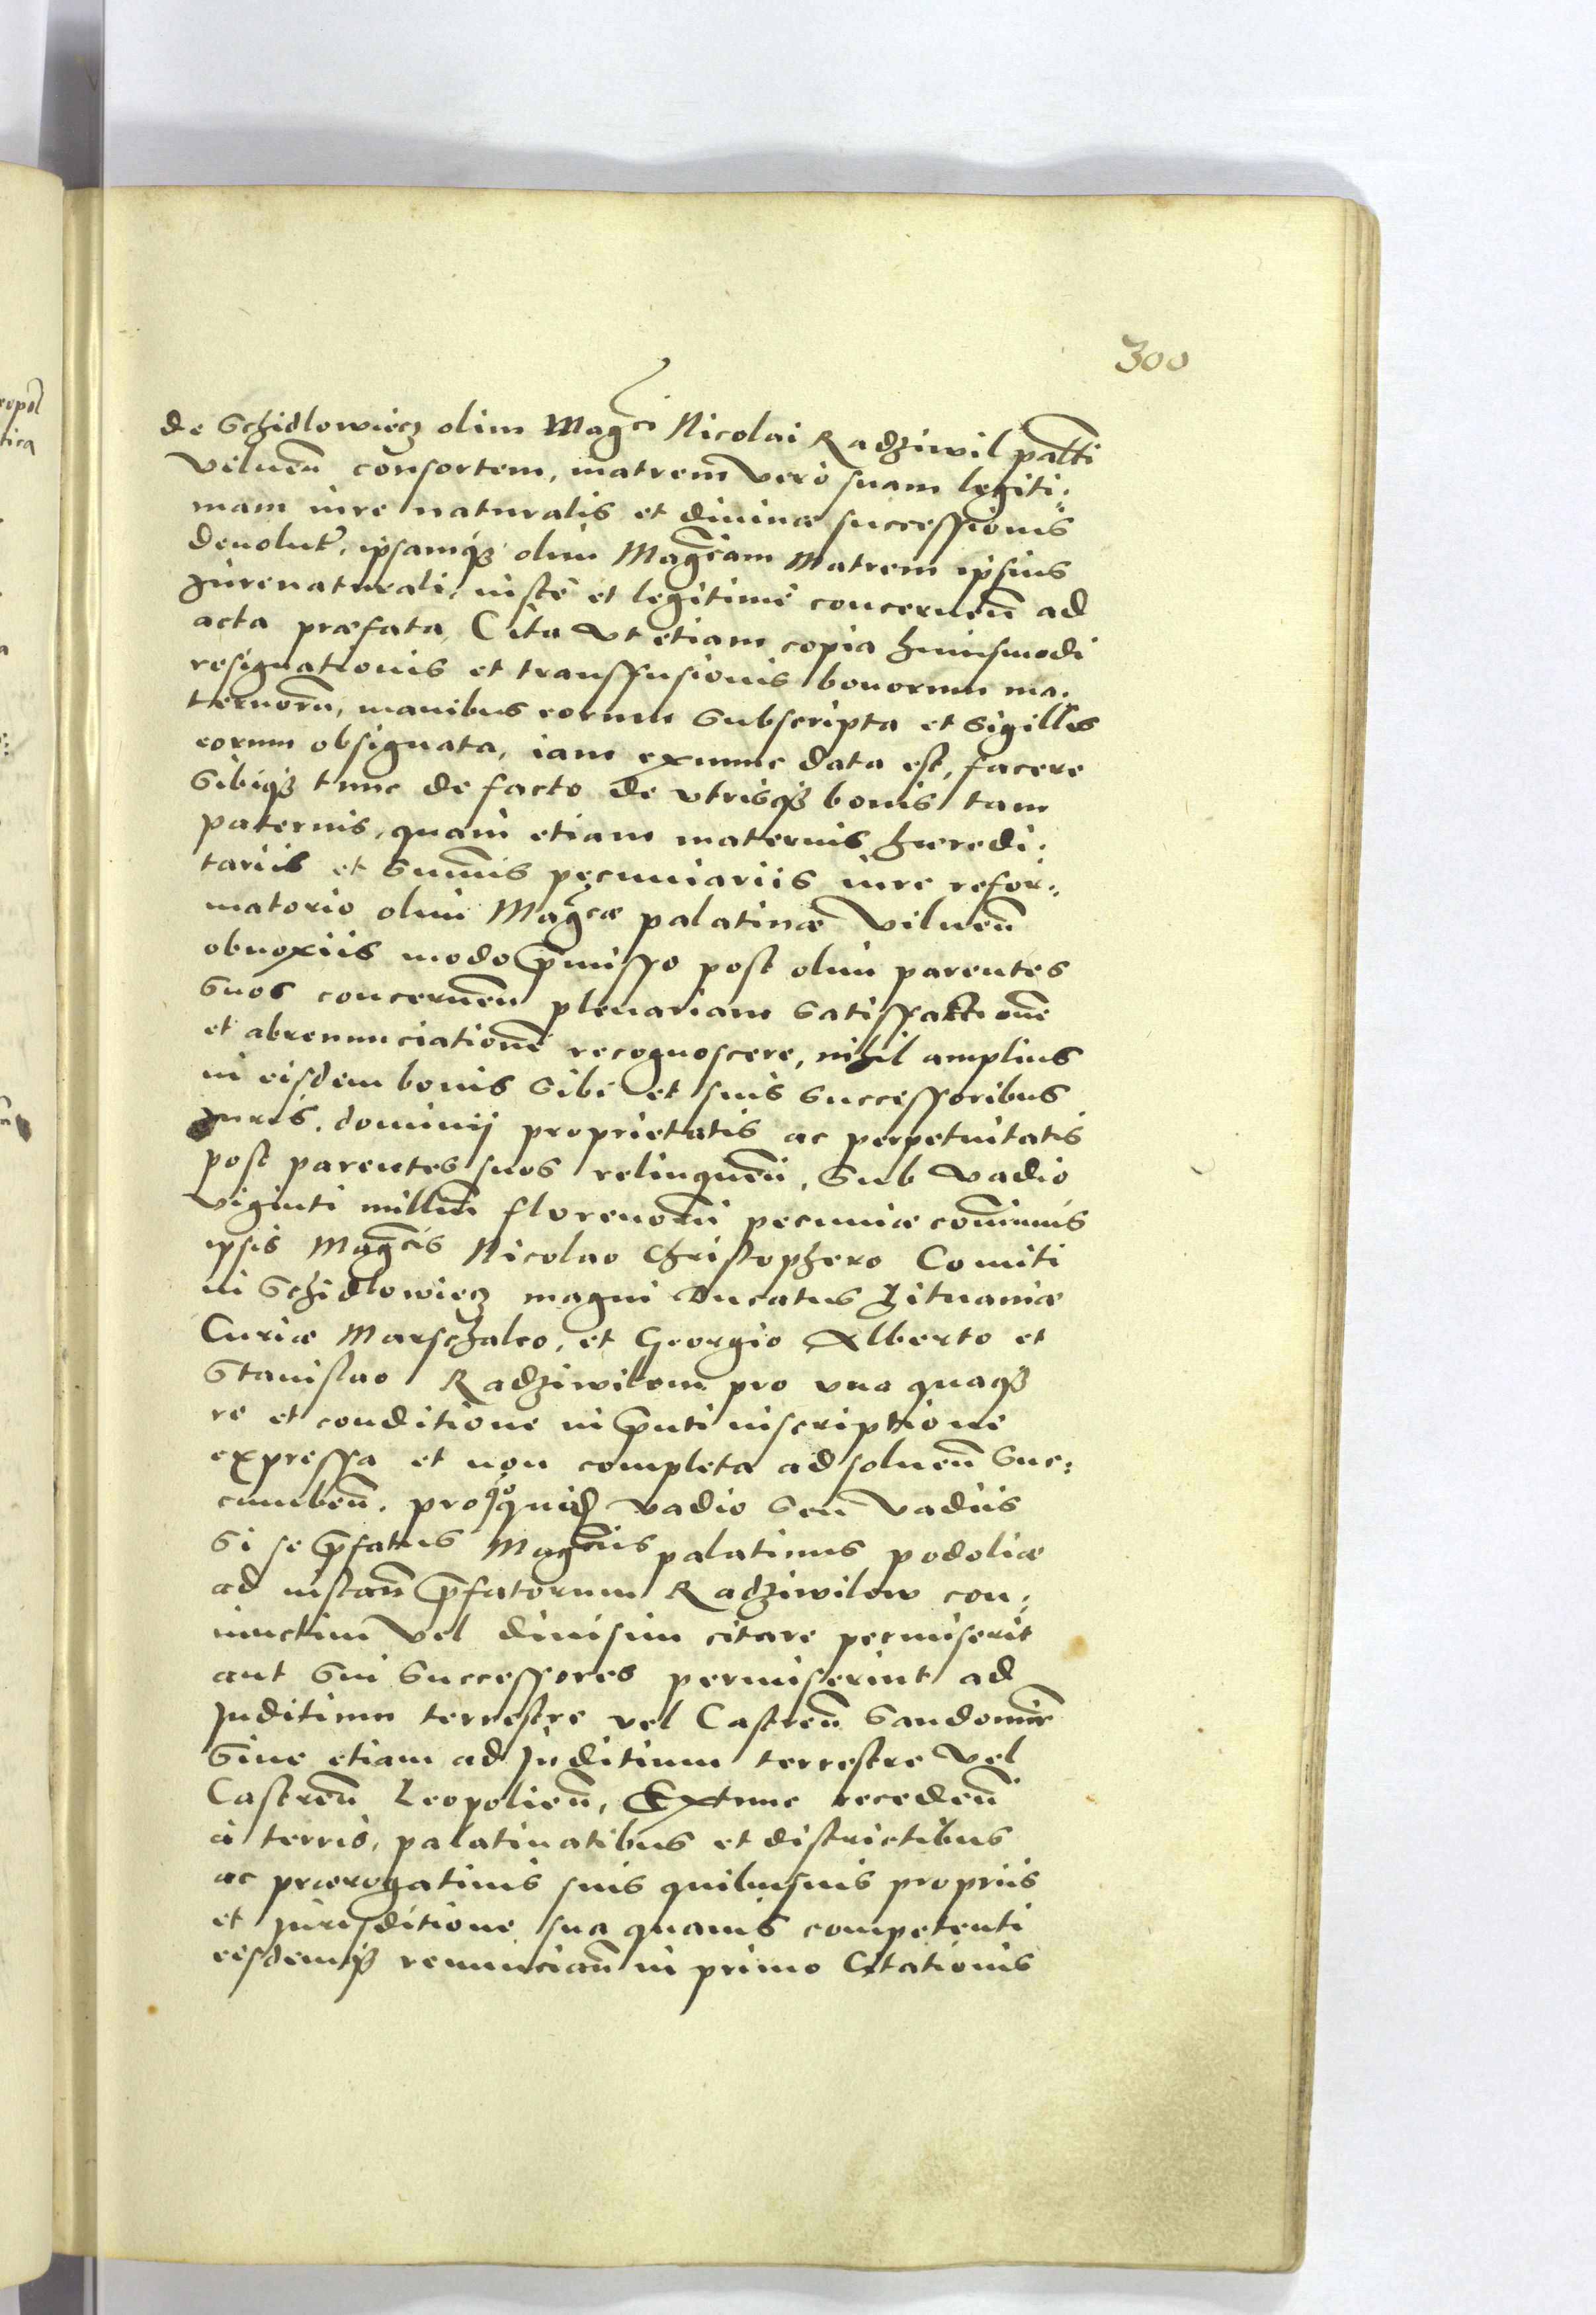 300
de Schidlowiecz olim Mag̃ci Nicolai Radziwil palãti
Vilneñ consortem, matrem vero suam legiti:
mam iure naturalis et diuinæ successionis
deuolut̃, ipsamq3 olim Mag̃cam Matrem ipsius
Jure naturali, iuste et legitime concerneñ ad
acta præfata, Cita vt etiam copia huiusmodi
resignationis et transfusionis bonorum ma:
ternorũ, manibus eorum subscripta et sigillis
eorum obsignata, iam exnunc data est, facere
sibiq3 tunc de facto de vtrisq3 bonis tam
paternis, quam etiam maternis hæredi:
tariis et sum̃is pecuniariis iure refor:
matorio olim Mag̃cæ palatinæ Vilneñ
obnoxiis modo p̃misso post olim parentes
suos concerneñ plenariam satisfactionẽ
et abrenunciationẽ recognoscere, nihil amplius
in eisdem bonis sibi et suis successoribus
Juris, dominij proprietatis ac perpetuitatis
post parentes suos relinqueñ, sub vadio
viginti milliũ florenorũ pecuniæ com̃unis
ipsis Mag̃cis Nicolao Christophero Comiti
in Schidlowiecz magni Ducatus Lituaniæ
Curiæ Marschalco, et Georgio Alberto et
Stanislao Radziwilom pro vna quaq3
re et conditione in p̃nti inscriptione
expressa et non completa ad solueñ suc:
cumbeñ. pro quo quid vadio seu vadiis
si se p̃fatus Mag̃cus palatinus podoliæ
ad instañ p̃fatorum Radziwilow con:
iunctim vel diuisim citare permiserit
aut sui successores permiserint ad
Juditium terrestre vel Castreñ Sandomir̃
siue etiam ad Juditium terrestre vel
Castreñ Leopolieñ, Extunc recedeñ
à terris, palatinatibus et districtibus
ac prærogatiuis suis quibusuis propriis
et jurisditione sua quauis competenti
eisdemq3 renunciañ in primo Citationis